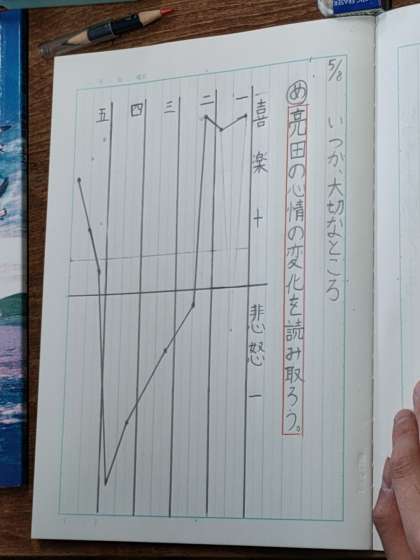 5/8
いつか、大切なところ
め 亮田の心情の変化を読み取ろう。
喜楽 +
悲怒 -
一
二
三
四
五